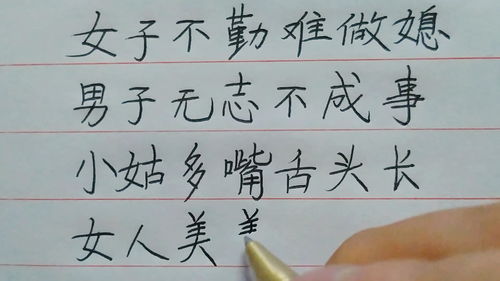 女子不勤难做媳
男子无志不成事
小姑多嘴舌头长
女人美